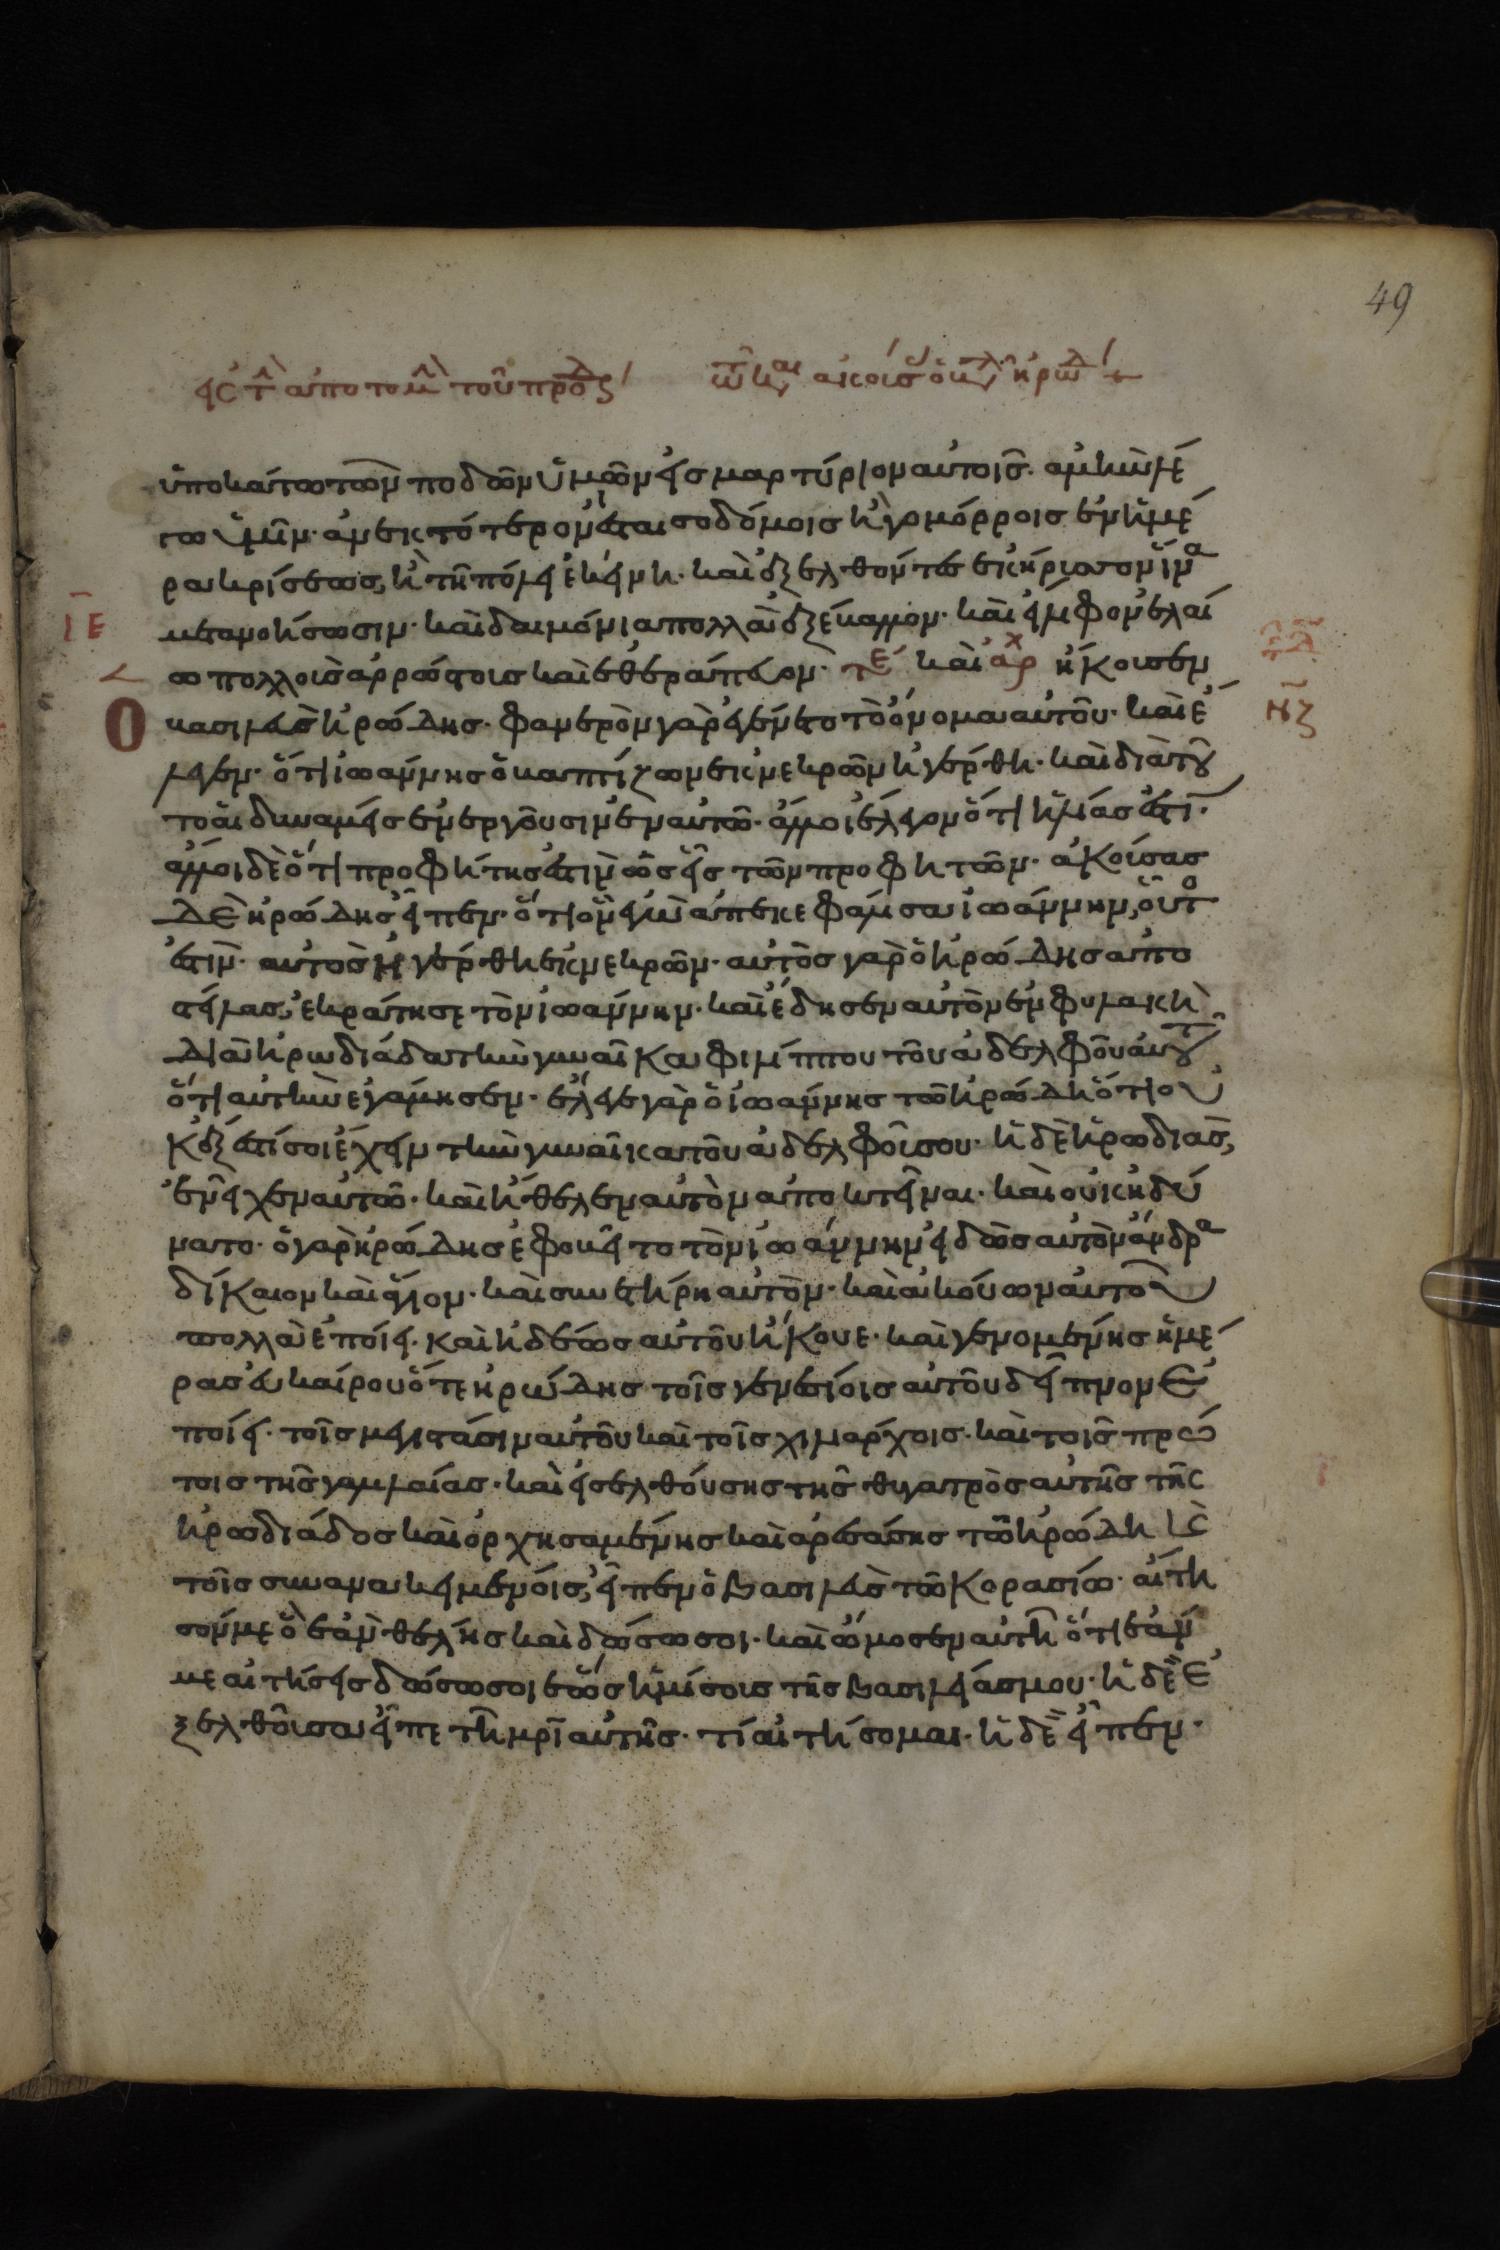 49
εἰς τ ἀποτομ τοῦ προδ τω και ἀκούσ ὁ β ἡρωδ
ὑποκάτω τῶν ποδῶν ὑμῶν εἰς μαρτύριον αὐτοῖς· ἀμὴν λέ
γω ὑμῖν· ἀνεκτότερον ἔσται σοδόμοις ἢ γομόρροις ἐν ἡμέ
ρα κρίσεως, ἢ τῆ πόλει ἐκείνη· καὶ ἐξελθόντες ἐκήρυσσον ἵνα
μετανοήσωσιν· καὶ δαιμόνια πολλὰ ἐξέβαλλον· καὶ ἤλειφον ἐλαί
ΙΕ
ω πολλοὺς ἀρρώστους καὶ ἐθεράπευον· τε καὶ ἀρχ ἤκουσεν
Ο βασιλεὺς ἡρώδης· φανερὸν γὰρ ἐγένετο τὸ ὄνομα αὐτοῦ· καὶ ἔ
ΝΖ
λεγεν· ὅτι ἰωάννης ὁ βαπτίζων ἐκ νεκρῶν ἠγέρθη· καὶ διὰ τοῦ
το αἱ δυναμεις ἐνεργοῦσιν ἐν αὐτῶ· ἄλλοι ἔλεγον ὅτι ἡλίας ἐστί·
ἄλλοι δὲ ὅτι προφήτης ἐστὶν ὡς εἷς τῶν προφητῶν· ἀκούσας
δὲ ἡρώδης εἶπεν· ὅτι ὃν ἐγὼ ἀπεκεφάλισα ἰωάννην, οὗτο
ἐστὶν· αὐτὸς ἠγέρθη ἐκ νεκρῶν· αὐτὸς γὰρ ὁ ἡρώδης ἀπο
στείλας, ἐκράτησε τὸν ἰωάννην· καὶ ἔδησεν αὐτὸν ἐν φυλακῆ
διὰ ἡρωδιάδα τὴν γυναῖκα φιλίππου τοῦ ἀδελφοῦ αὐτοῦ
ὅτι αὐτὴν ἐγάμησεν· ἔλεγε γὰρ ὁ ἰωάννης τῶ ἡρώδη ὅτι οὐ
κ ἔξεστί σοι ἔχειν τὴν γυναῖκα τοῦ ἀδελφοῦ σου· ἡ δὲ ἡρωδιὰς,
ἐνεῖχεν αὐτῶ· καὶ ἤθελεν αὐτὸν ἀποκτεῖναι· καὶ οὐκ ἠδύ
νατο· ὁ γὰρ ἡρώδης ἐφοβεῖτο τὸν ἰωάννην εἰδὼς αὐτὸν ἄνδρα
δίκαιον καὶ ἅγιον· καὶ συνετήρη αὐτὸν· καὶ ἀκούων αὐτοῦ
πολλὰ ἐποίει· καὶ ἡδέως αὐτοῦ ἤκουε· καὶ γενομένης ἡμέ
ρας εὐκαίρου ὅτε ἡρώδης τοῖς γενεσίοις αὐτοῦ δεῖπνον ἐ
ποίει· τοῖς μεγιστάσιν αὐτοῦ καὶ τοῖς χιλιάρχοις· καὶ τοῖς πρώ
τοις τῆς γαλιλαίας· καὶ εἰσελθούσης τῆς θυγατρὸς αὐτῆς τῆς
ἡρωδιάδος καὶ ὀρχησαμένης καὶ ἀρεσάσης τῶ ἡρώδη καὶ
τοῖς συνανακειμένοις, εἶπεν ὁ βασιλεὺς τῶ κορασίω· αἴτη
σόν με ὃ ἐὰν θέλης καὶ δώσω σοι· καὶ ὤμοσεν αὐτῆ ὅτι ἐάν
με αἰτήσεις δώσω σοι ἕως ἡμίσους τῆς βασιλείας μου· ἡ δὲ ἐ
ξελθοῦσα εἶπε τῆ μρὶ αὐτῆς· τί αἰτήσομαι· ἡ δὲ εἶπεν·